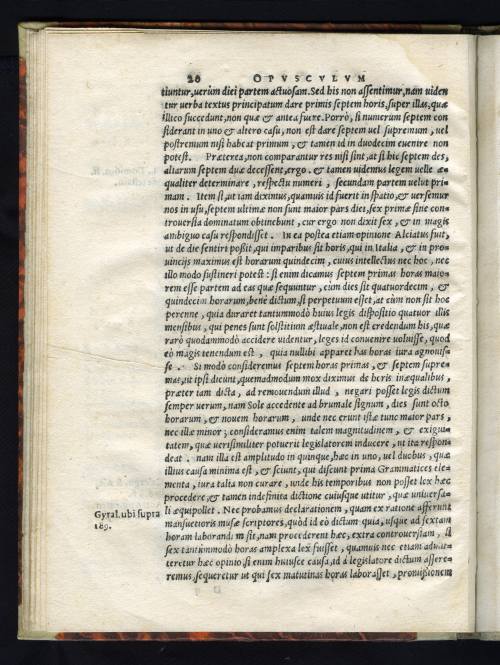 20 OPVSCVLVM
tiuntur, uerùm diei partem actuosam. Sed his non assentimur, nam uiden
tur uerba textus principatum dare primis septem horis, super illas, quæ
illico succedunt, non quæ & antea fuere. Porrò, si numerum septem con
siderant in uno & altero casu, non est dare septem uel supremum, uel
postremum nisi habeat primum, & tamen id in duodecim euenire non
potest. Præterea, non comparantur res nisi sint, at si hic septem des,
aliarum septem duæ decessent, ergo. & tamen uidemus legem uelle æ=
qualiter determinare, respectu numeri, secundam partem uelut pri=
mam. Item si, ut iam diximus, quamuis id fuerit in spatio, & uersemur
nos in usu, septem ultimæ non sunt maior pars diei, sex primæ sine con=
trouersia dominatum obtinebunt, cur ergo non dixit sex, & in magis
ambiguo casu respondisset. In ea postea etiam opinione Alciatus fuit,
ut de die sentiri possit, qui imparibus sit horis, qui in Italia, & in pro=
uincijs maximus est horarum quindecim, cuius intellectus nec hoc, nec
illo modo sustineri potest: si enim dicamus septem primas horas maio=
rem esse partem ad eas quæ sequuntur, cùm dies sit quatuordecim, &
quindecim horarum, benè dictum, si perpetuum esset, at cùm non sit hoc
perenne, quia duraret tantummodò huius legis dispositio quatuor illis
mensibus, qui penes sunt solstitium æstuale, non est credendum his, quæ
rarò quodammodò accidere uidentur, leges id conuenire uoluisse, quod
eò magis tenendum est, quia nullibi apparet has horas iura agnouis=
se. Si modò consideremus septem horas primas, & septem supre=
mas, ut ipsi dicunt, quemadmodum mox diximus de horis inæqualibus,
præter iam dicta, ad remouendum illud, negari posset legis dictum
semper uerum, nam Sole accedente ad brumale signum, dies sunt octo
horarum, & nouem horarum, unde nec erunt istæ tunc maior pars,
nec illæ minor, consideramus enim talem magnitudinem, & exigui=
tatem, quæ uerisimiliter potuerit legislatorem inducere, ut ita respon=
deat. nam illa est amplitudo in quinque, hæc in uno, uel duobus, quæ
illius causa minima est, & sciunt, qui discunt prima Grammatices ele=
menta, iura talia non curare, unde his temporibus non posset lex hæc
procedere, & tamen indefinita dictione cuiusque utitur, quæ uniuersa=
li æquipollet. Nec probamus declarationem, quam ex ratione afferunt
Gyral. ubi supra
189.
mansuetioris musæ scriptores, quòd id eò dictum quia, usque ad sextam
horam laborandum sit, nam procederent hæc, extra controuersiam, si
sex tantummodò horas amplexa lex fuisset, quamuis nec etiam admit=
teretur hæc opinio si enim huiusce causa, id à legislatore dictum assere=
remus, sequeretur ut qui sex matutinas horas laborasset, promissionem